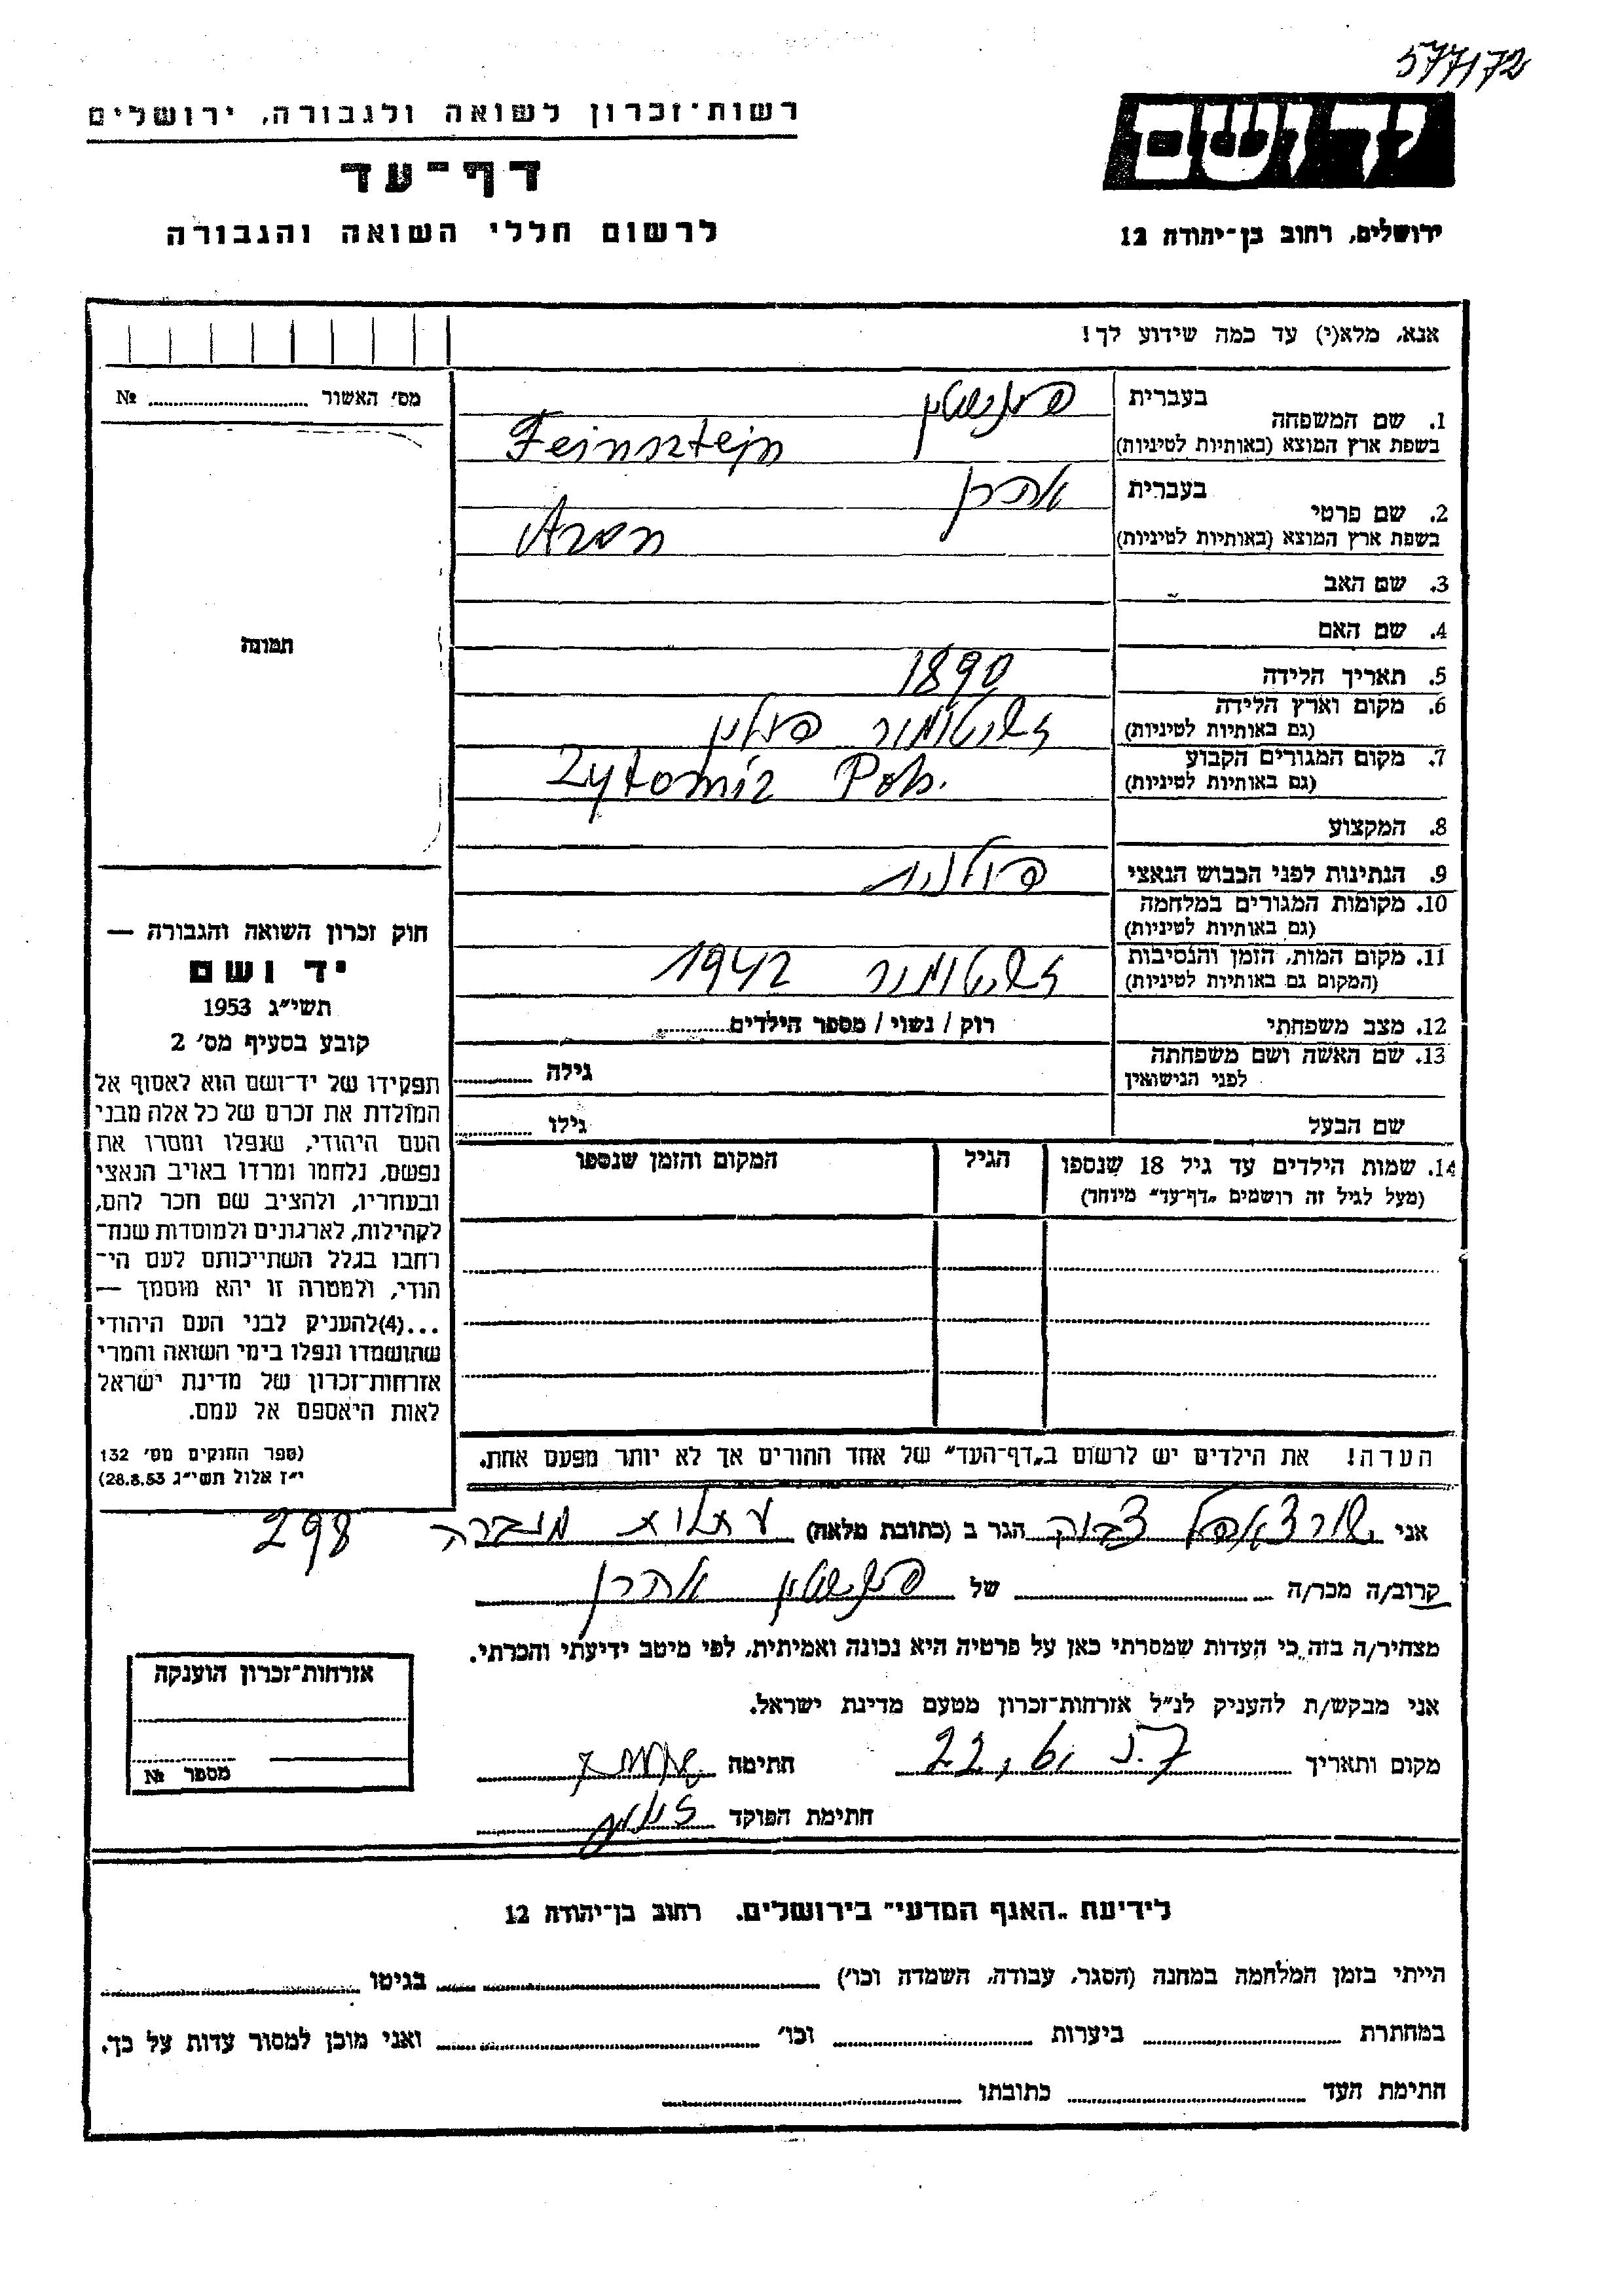 577172
רשות־זכרון לשואה ולגבורה, ירושלים
דף־עד
לרשום חללי השואה והגבורה
יד ושם
ירושלים, רחוב בן־יהודה 12
אנא, מלא(י) עד כמה שידוע לך!
מס׳ האשור № 
1. שם המשפחה בעברית פינשטין
בשפת ארץ המוצא (באותיות לטיניות) Feinsztejn
2. שם פרטי בעברית אהרן
בשפת ארץ המוצא (באותיות לטיניות) Aron
3. שם האב
4. שם האם
תמונה
5. תאריך הלידה 1890
6. מקום וארץ הלידה (גם באותיות לטיניות) ז׳יטומיר פולין
7. מקום המגורים הקבוע (גם באותיות לטיניות) Zytomir Pol.
8. המקצוע
9. הנתינות לפני הכבוש הנאצי פולנית
10. מקומות המגורים במלחמה (גם באותיות לטיניות)
11. מקום המות, הזמן והנסיבות (המקום גם באותיות לטיניות) ז׳יטומיר 1942
12. מצב משפחתי רוק / נשוי / מספר הילדים
13. שם האשה ושם משפחתה לפני הנישואין גילה
שם הבעל גילו
14. שמות הילדים עד גיל 18 שנספו הגיל המקום והזמן שנספו
(מעל לגיל זה רושמים „דף־עד״ מיוחד)
הערה! את הילדים יש לרשום ב„דף־העד״ של אחד ההורים אך לא יותר מפעם אחת.
חוק זכרון השואה והגבורה —
יד ושם
תשי״ג 1953
קובע בסעיף מס׳ 2
תפקידו של יד־ושם הוא לאסוף אל
המולדת את זכרם של כל אלה מבני
העם היהודי, שנפלו ומסרו את
נפשם, נלחמו ומרדו באויב הנאצי
ובעוזריו, ולהציב שם וזכר להם,
לקהילות, לארגונים ולמוסדות שנח־
רבו בגלל השתייכותם לעם הי־
הודי, ולמטרה זו יהא מוסמך —
...(4)להעניק לבני העם היהודי
שהושמדו ונפלו בימי השואה והמרי
אזרחות־זכרון של מדינת ישראל
לאות היאספם אל עמם.
(ספר החוקים מס׳ 132
י״ז אלול תשי״ג 28.8.53)
אני הגר ב (כתובת מלאה) עתלית מעברה 298
קרוב/ה מכר/ה של פינשטין אהרן
מצהיר/ה בזה כי העדות שמסרתי כאן על פרטיה היא נכונה ואמיתית, לפי מיטב ידיעתי והכרתי.
אני מבקש/ת להעניק לנ״ל אזרחות־זכרון מטעם מדינת ישראל.
מקום ותאריך חתימה
חתימת הפוקד
אזרחות־זכרון הוענקה
מספר №
לידיעת „האגף המדעי״ בירושלים. רחוב בן־יהודה 12
הייתי בזמן המלחמה במחנה (הסגר, עבודה, השמדה וכו׳) בגיטו
במחתרת ביערות וכו׳ ואני מוכן למסור עדות על כך.
חתימת העד כתובתו